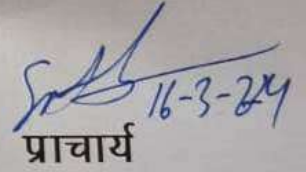 16-3-24
प्राचार्य